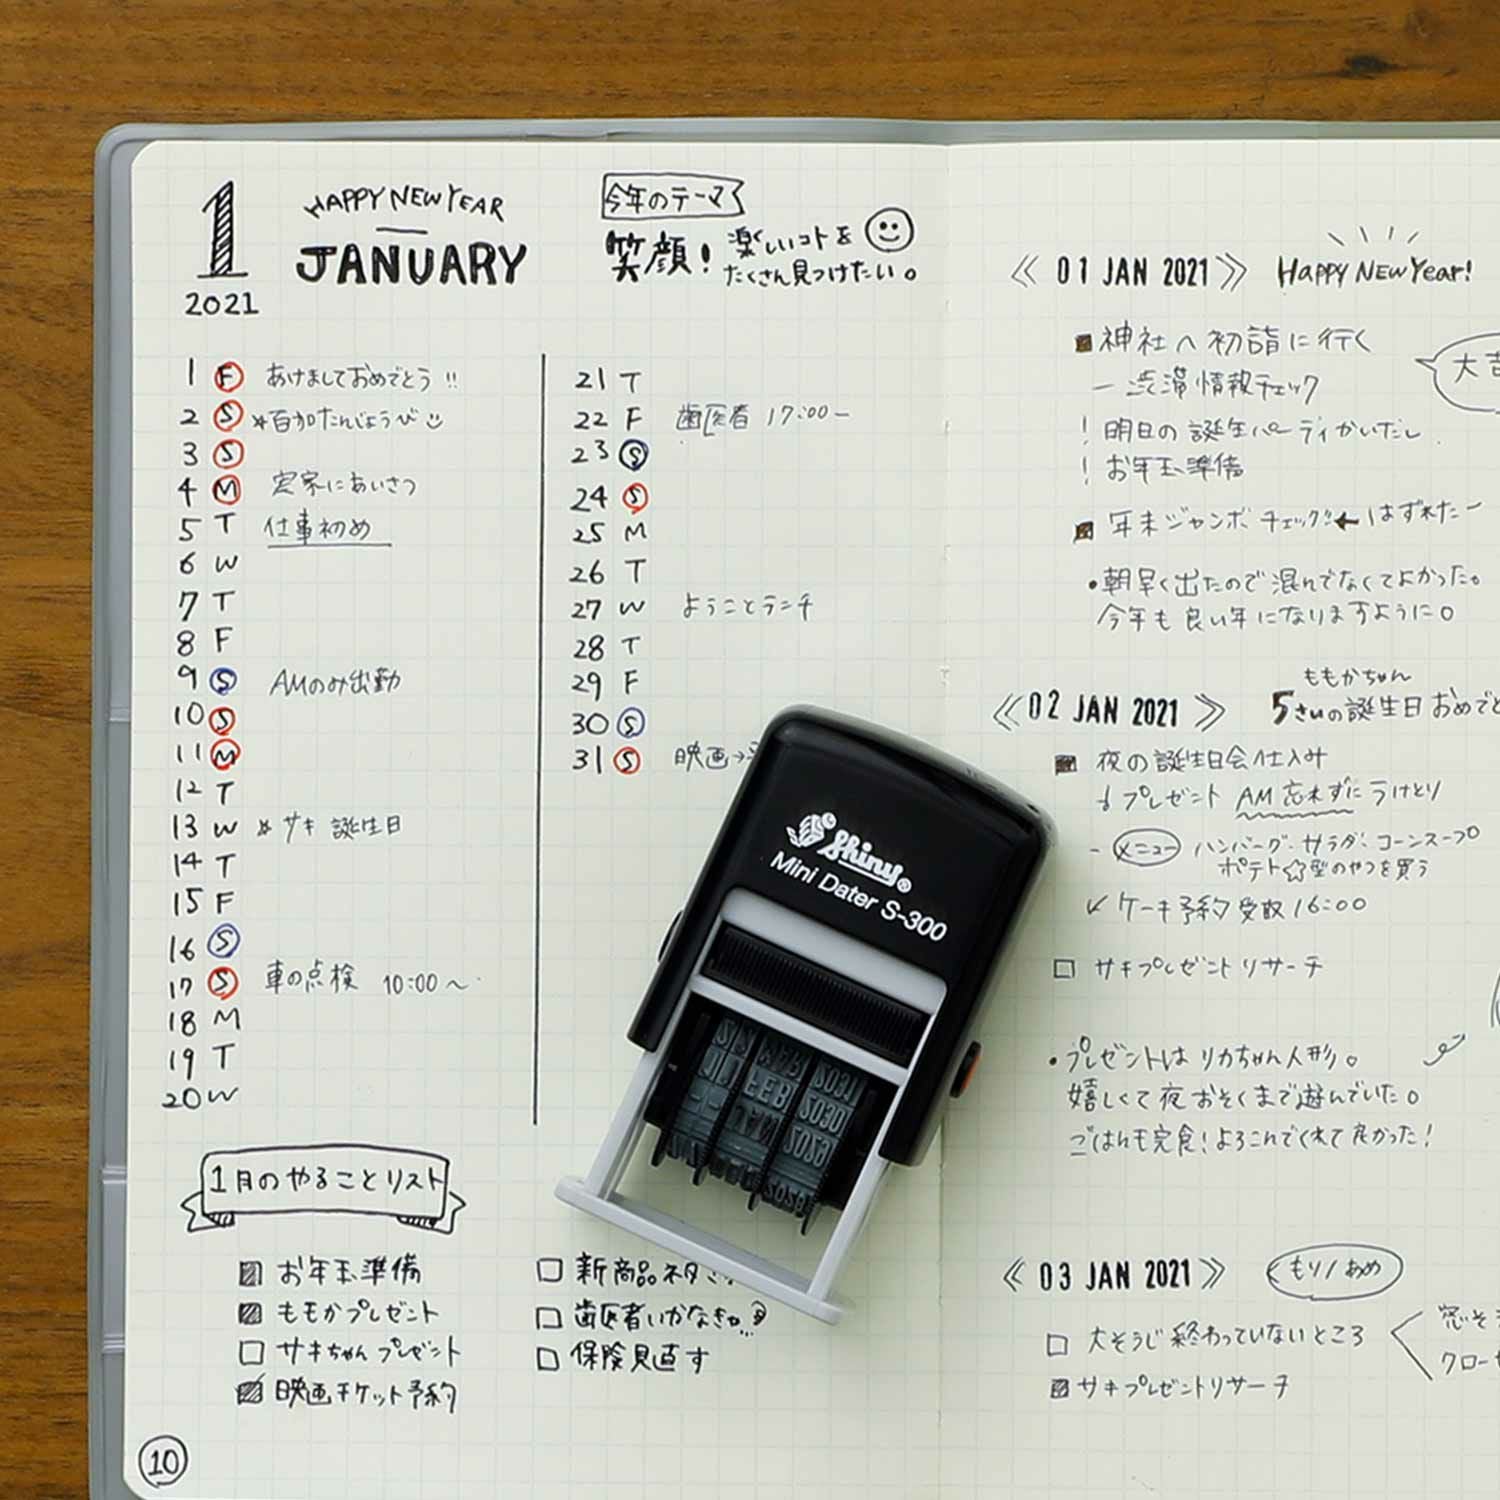 1
2021
HAPPY NEW YEAR
JANUARY
今年のテーマ
笑顔! 楽しいコトを
たくさん見つけたい。
1 F あけましておめでとう!!
2 S *百加たんじょうび
3 S
4 M 実家にあいさつ
5 T 仕事初め
6 W
7 T
8 F
9 S AMのみ出勤
10 S
11 M
12 T
13 W *サキ 誕生日
14 T
15 F
16 S
17 S 車の点検 10:00〜
18 M
19 T
20 W
21 T
22 F 歯医者 17:00ー
23 S
24 S
25 M
26 T
27 W ようことランチ
28 T
29 F
30 S
31 S 映画→
1月のやることリスト
お年玉準備
ももかプレゼント
サキちゃんプレゼント
映画チケット予約
新商品ネタ
歯医者いかなきゃ...
保険見直す
10
Shiny®
Mini Dater S-300
《01 JAN 2021》 Happy New Year!
神社へ初詣に行く
ー渋滞情報チェック
大吉
! 明日の誕生パーティかいだし
! お年玉準備
年末ジャンボチェック!!←はずれたー
・朝早く出たので混んでなくてよかった。
今年も良い年になりますように。
ももかちゃん
《02 JAN 2021》 5さいの誕生日おめでと
夜の誕生日会仕込み
プレゼント AM忘れずにうけとり
- メニュー ハンバーグ・サラダ・コーンスープ
ポテト☆型のやつを買う
✓ケーキ予約受取16:00
サキプレゼントリサーチ
・プレゼントはリカちゃん人形。
嬉しくて夜おそくまで遊んでいた。
ごはんも完食!よろこんでくれて良かった!
《03 JAN 2021》 もり/あめ
大そうじ終わっていないところ
窓そう
クロー
サキプレゼントリサーチ